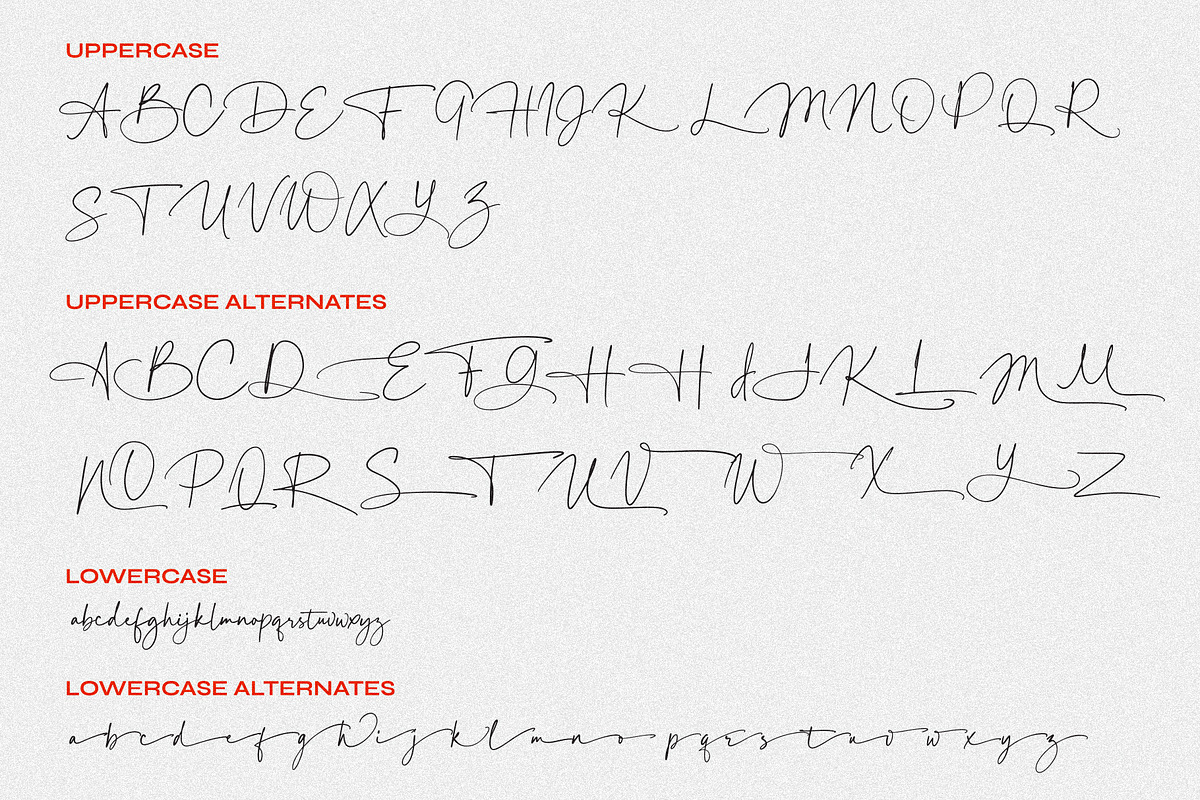 UPPERCASE
ABCDEFGHIJKLMNOPQR
STUVWXYZ
UPPERCASE ALTERNATES
ABCDEFGHHIJKLMM
NOPQRSTUVWXYZ
LOWERCASE
abcdefghijklmnopqrstuvwxyz
LOWERCASE ALTERNATES
abcdefghijklmnopqrstuvwxyz